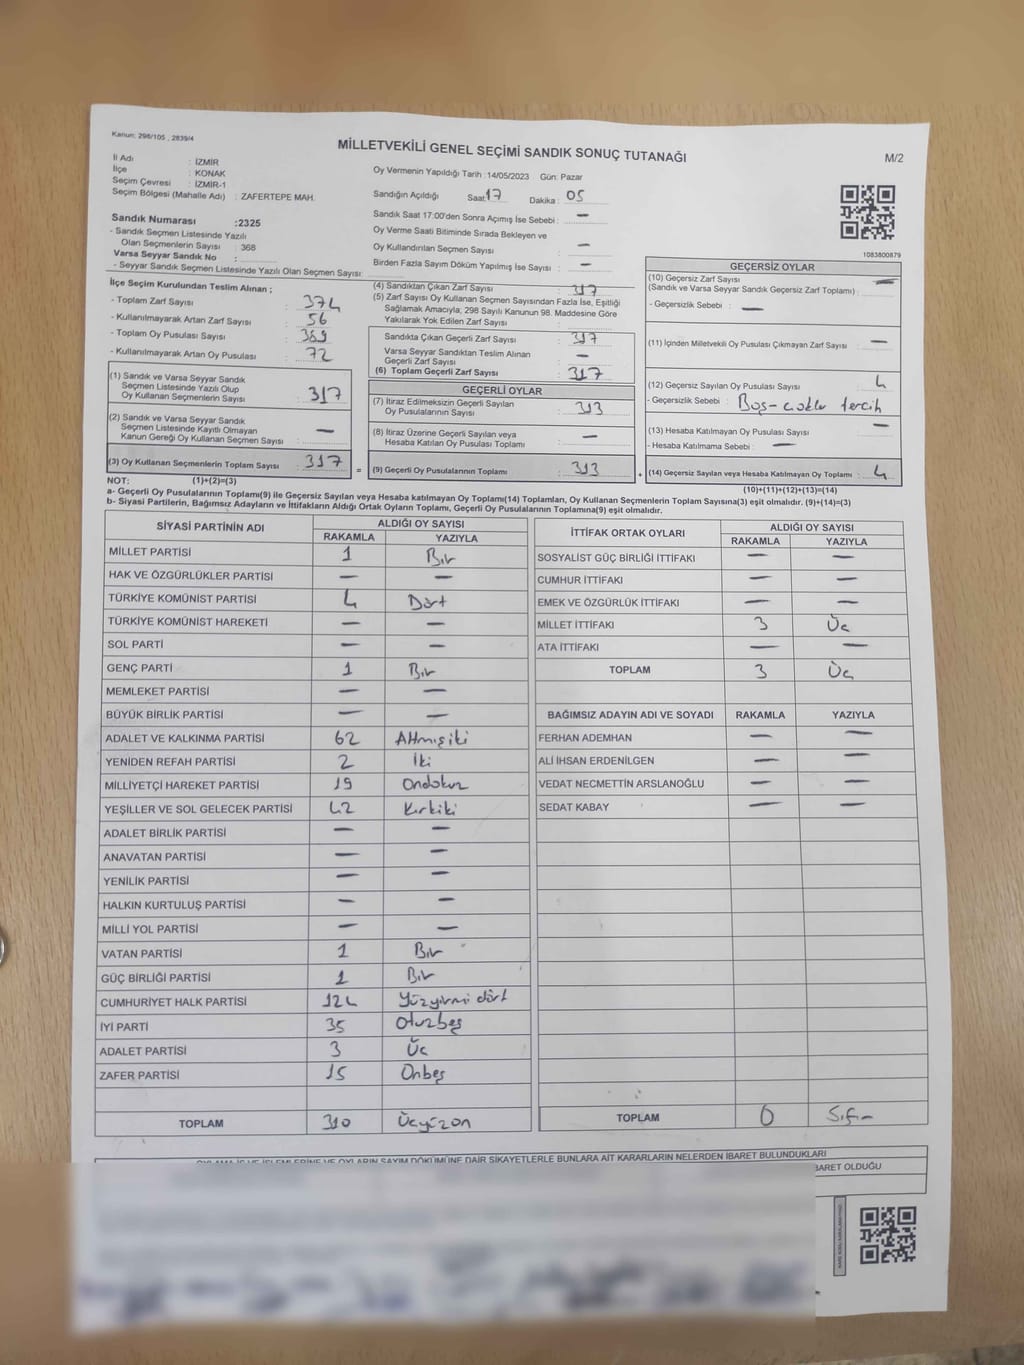 Kanun: 298/105 , 2839/4
MİLLETVEKİLİ GENEL SEÇİMİ SANDIK SONUÇ TUTANAĞI
M/2
İl Adı : İZMİR
İlçe : KONAK
Seçim Çevresi : İZMİR-1
Seçim Bölgesi (Mahalle Adı) : ZAFERTEPE MAH.
Sandık Numarası :2325
- Sandık Seçmen Listesinde Yazılı
Olan Seçmenlerin Sayısı : 368
Varsa Seyyar Sandık No :
- Seyyar Sandık Seçmen Listesinde Yazılı Olan Seçmen Sayısı:
Oy Vermenin Yapıldığı Tarih :14/05/2023 Gün: Pazar
Sandığın Açıldığı Saat 17 Dakika : 05
Sandık Saat 17:00'den Sonra Açımış İse Sebebi : —
Oy Verme Saati Bitiminde Sırada Bekleyen ve
Oy Kullandırılan Seçmen Sayısı : —
Birden Fazla Sayım Döküm Yapılmış İse Sayısı : —
1083800879
İlçe Seçim Kurulundan Teslim Alınan ;
- Toplam Zarf Sayısı : 374
- Kullanılmayarak Artan Zarf Sayısı : 56
- Toplam Oy Pusulası Sayısı : 389
- Kullanılmayarak Artan Oy Pusulası : 72
(1) Sandık ve Varsa Seyyar Sandık
Seçmen Listesinde Yazılı Olup
Oy Kullanan Seçmenlerin Sayısı : 317
(2) Sandık ve Varsa Seyyar Sandık
Seçmen Listesinde Kayıtlı Olmayan
Kanun Gereği Oy Kullanan Seçmen Sayısı : —
(3) Oy Kullanan Seçmenlerin Toplam Sayısı : 317
(4) Sandıktan Çıkan Zarf Sayısı : 317
(5) Zarf Sayısı Oy Kullanan Seçmen Sayısından Fazla İse, Eşitliği
Sağlamak Amacıyla; 298 Sayılı Kanunun 98. Maddesine Göre
Yakılarak Yok Edilen Zarf Sayısı :
Sandıkta Çıkan Geçerli Zarf Sayısı : 317
Varsa Seyyar Sandıktan Teslim Alınan
Geçerli Zarf Sayısı : —
(6) Toplam Geçerli Zarf Sayısı : 317
GEÇERLİ OYLAR
(7) İtiraz Edilmeksizin Geçerli Sayılan
Oy Pusulalarının Sayısı : 313
(8) İtiraz Üzerine Geçerli Sayılan veya
Hesaba Katılan Oy Pusulası Toplamı : —
= (9) Geçerli Oy Pusulalarının Toplamı : 313 +
GEÇERSİZ OYLAR
(10) Geçersiz Zarf Sayısı
(Sandık ve Varsa Seyyar Sandık Geçersiz Zarf Toplamı) : —
- Geçersizlik Sebebi : —
(11) İçinden Milletvekili Oy Pusulası Çıkmayan Zarf Sayısı : —
(12) Geçersiz Sayılan Oy Pusulası Sayısı : 4
- Geçersizlik Sebebi : Boş- tercih
(13) Hesaba Katılmayan Oy Pusulası Sayısı : —
- Hesaba Katılmama Sebebi : —
(14) Geçersiz Sayılan veya Hesaba Katılmayan Oy Toplamı : 4
NOT: (1)+(2)=(3) (10)+(11)+(12)+(13)=(14)
a- Geçerli Oy Pusulalarının Toplamı(9) ile Geçersiz Sayılan veya Hesaba katılmayan Oy Toplamı(14) Toplamları, Oy Kullanan Seçmenlerin Toplam Sayısına(3) eşit olmalıdır. (9)+(14)=(3)
b- Siyasi Partilerin, Bağımsız Adayların ve İttifakların Aldığı Ortak Oyların Toplamı, Geçerli Oy Pusulalarının Toplamına(9) eşit olmalıdır.
SİYASİ PARTİNİN ADI ALDIĞI OY SAYISI
RAKAMLA YAZIYLA
MİLLET PARTİSİ 1 Bir
HAK VE ÖZGÜRLÜKLER PARTİSİ — —
TÜRKİYE KOMÜNİST PARTİSİ 4 Dört
TÜRKİYE KOMÜNİST HAREKETİ — —
SOL PARTİ — —
GENÇ PARTİ 1 Bir
MEMLEKET PARTİSİ — —
BÜYÜK BİRLİK PARTİSİ — —
ADALET VE KALKINMA PARTİSİ 62 Altmışiki
YENİDEN REFAH PARTİSİ 2 İki
MİLLİYETÇİ HAREKET PARTİSİ 19 Ondokuz
YEŞİLLER VE SOL GELECEK PARTİSİ 42 Kırkiki
ADALET BİRLİK PARTİSİ — —
ANAVATAN PARTİSİ — —
YENİLİK PARTİSİ — —
HALKIN KURTULUŞ PARTİSİ — —
MİLLİ YOL PARTİSİ — —
VATAN PARTİSİ 1 Bir
GÜÇ BİRLİĞİ PARTİSİ 1 Bir
CUMHURİYET HALK PARTİSİ 124 Yüzyirmi dört
İYİ PARTİ 35 Otuzbeş
ADALET PARTİSİ 3 Üç
ZAFER PARTİSİ 15 Onbeş
TOPLAM 310 Üçyüzon
İTTİFAK ORTAK OYLARI ALDIĞI OY SAYISI
RAKAMLA YAZIYLA
SOSYALİST GÜÇ BİRLİĞİ İTTİFAKI — —
CUMHUR İTTİFAKI — —
EMEK VE ÖZGÜRLÜK İTTİFAKI — —
MİLLET İTTİFAKI 3 Üç
ATA İTTİFAKI — —
TOPLAM 3 Üç
BAĞIMSIZ ADAYIN ADI VE SOYADI RAKAMLA YAZIYLA
FERHAN ADEMHAN — —
ALİ İHSAN ERDENİLGEN — —
VEDAT NECMETTİN ARSLANOĞLU — —
SEDAT KABAY — —
TOPLAM 0 Sıfır
OYLAMA İŞ VE İŞLEMLERİNE VE OYLARIN SAYIM DÖKÜMÜNE DAİR ŞİKAYETLERLE BUNLARA AİT KARARLARIN NELERDEN İBARET BULUNDUKLARI
İBARET OLDUĞU